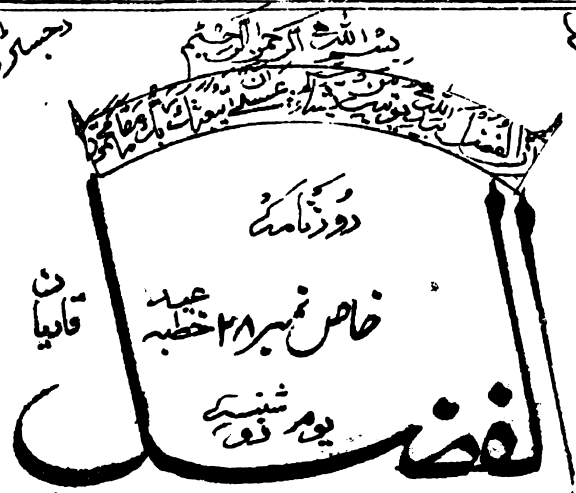 بسم اللہ الرحمن الرحیم
ان الفضل بید اللہ یؤتیہ من یشاء عسیٰ ان یبعثک ربک مقاماً محموداً
روزنامہ
خاص نمبر ۲۸ خطبہ عید
قادیان
یوم دو شنبہ
الفضل